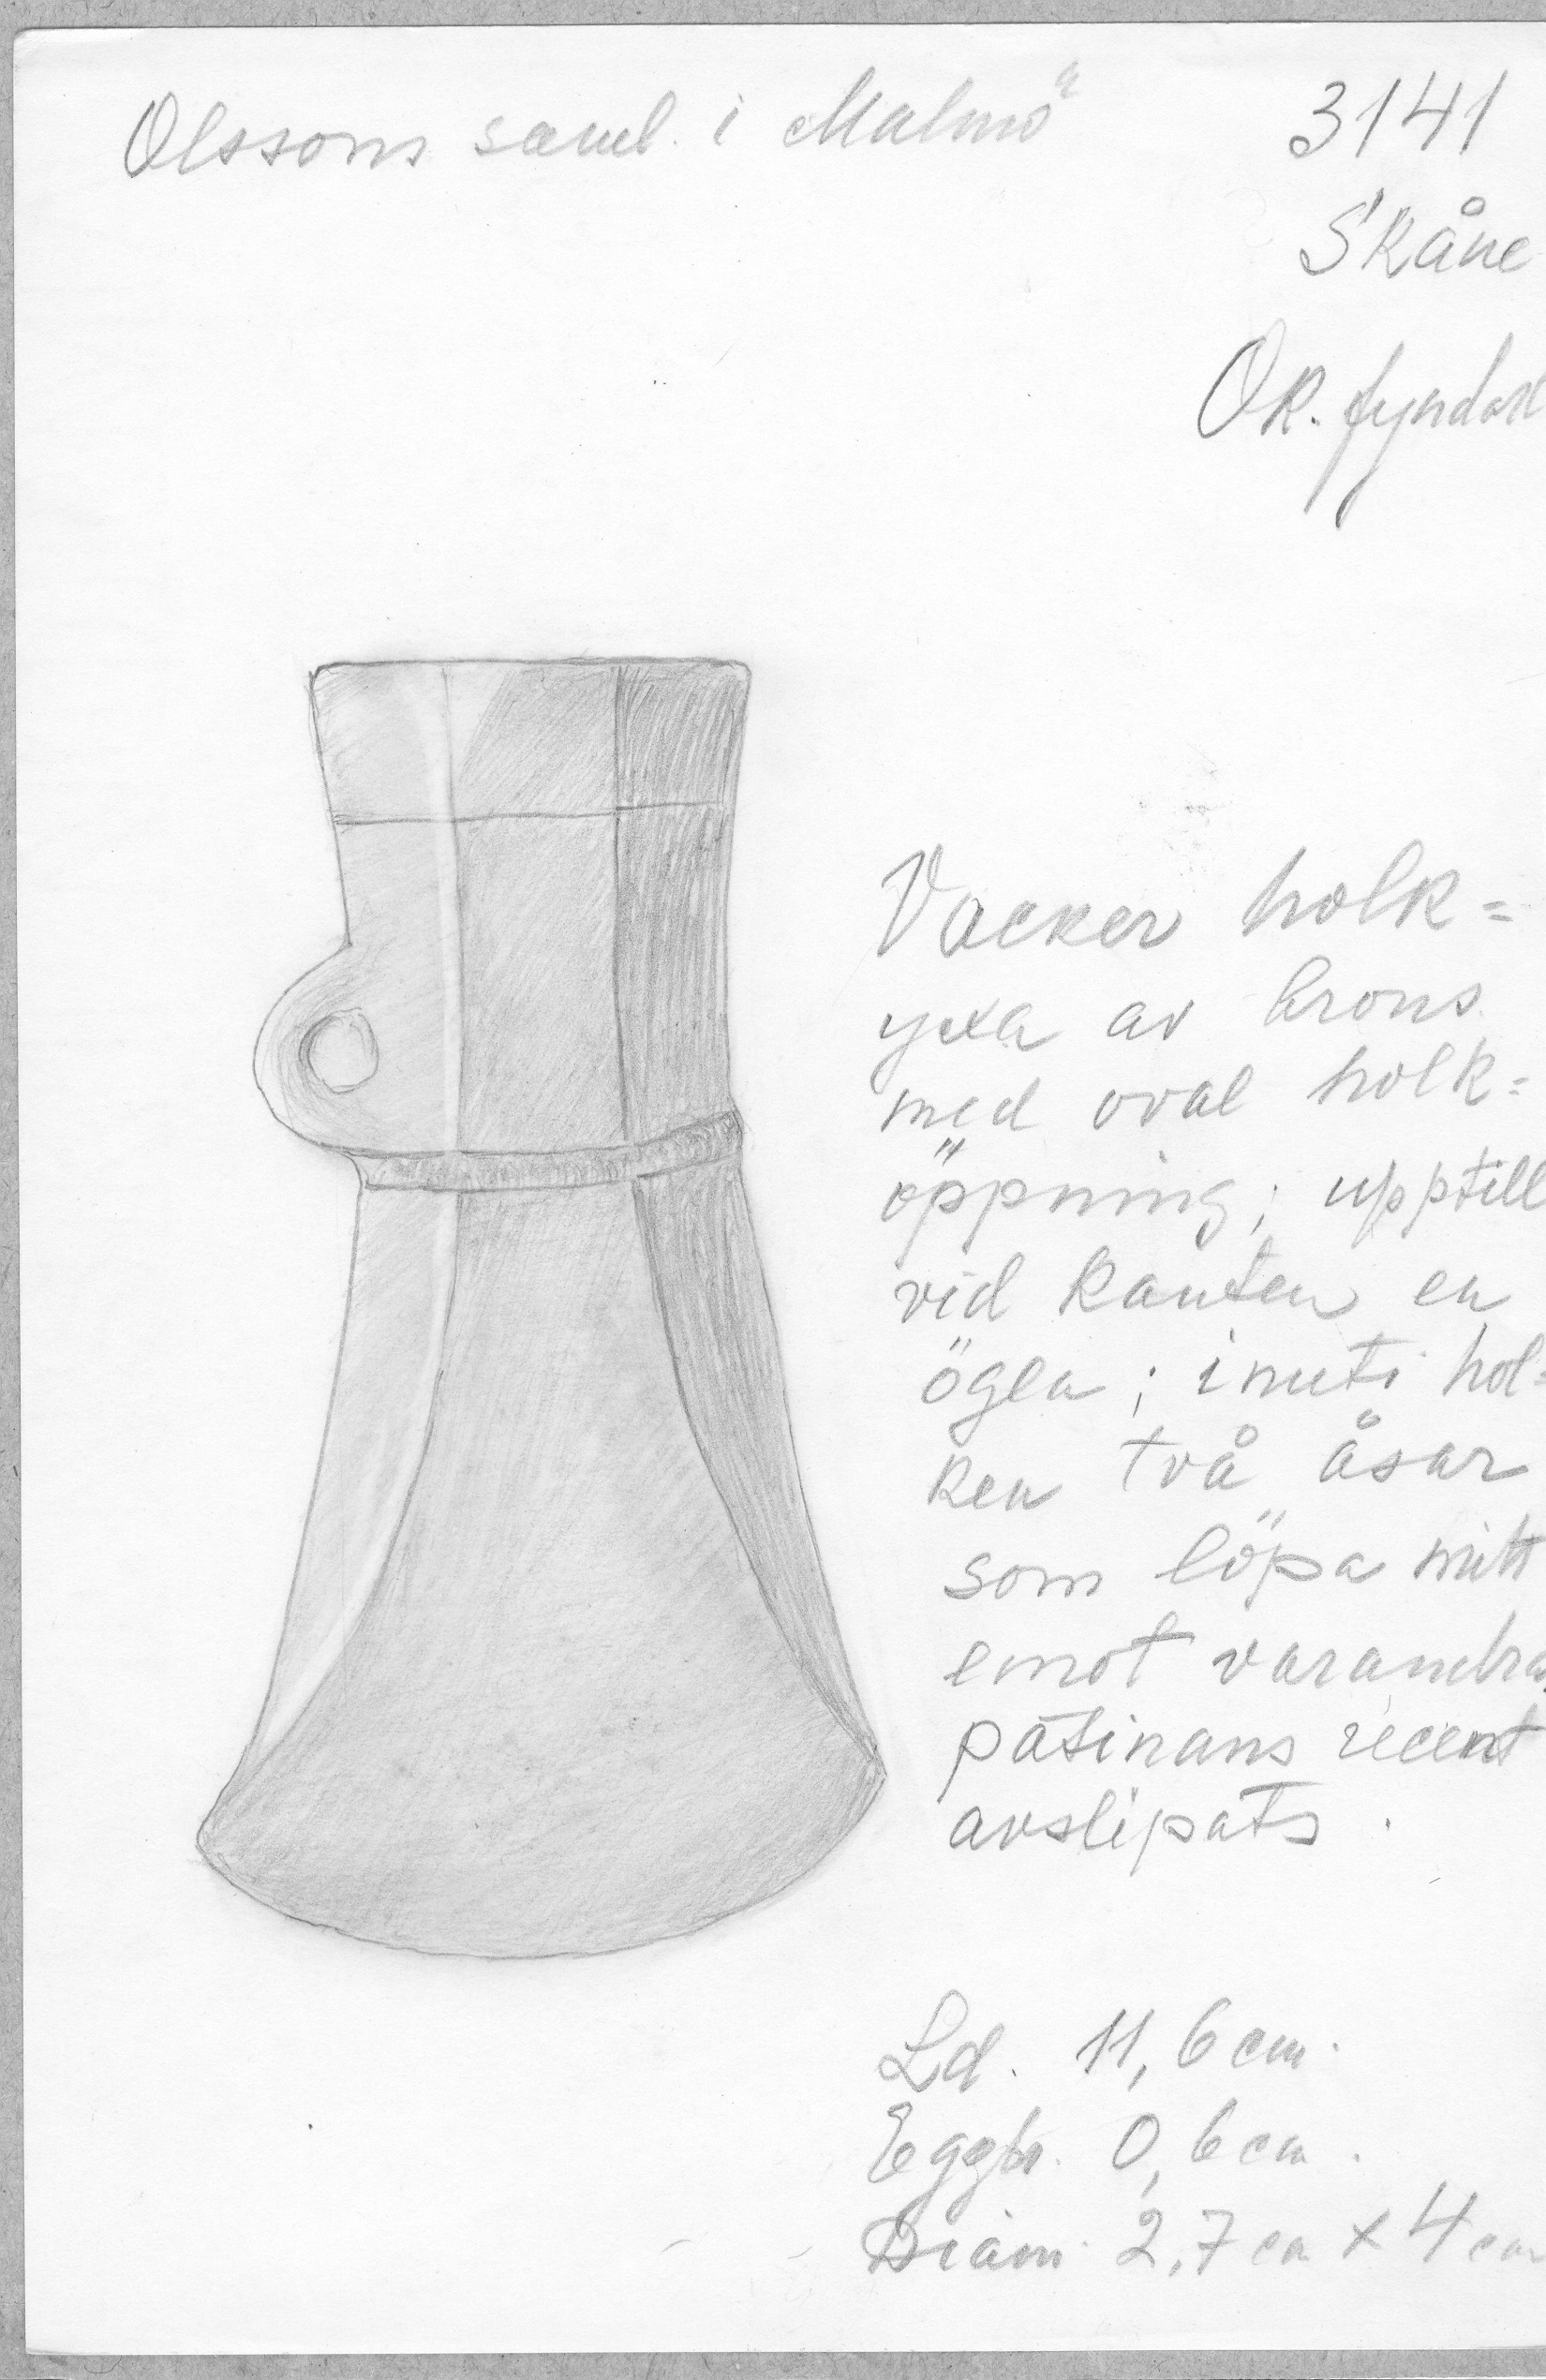 Olssons saml. i Malmö
3141
Skåne
Ok. fyndort
Vacker holk=
yxa av brons
med oval holk=
öppning; upptill
vid kanten en
ögla; inuti hol=
ken två åsar
som löpa mitt
emot varandra
patinans recent
avslipats.
Ld. 11,6 cm.
Eggbr. 0,6 cm.
Diam. 2,7 cm x 4 cm